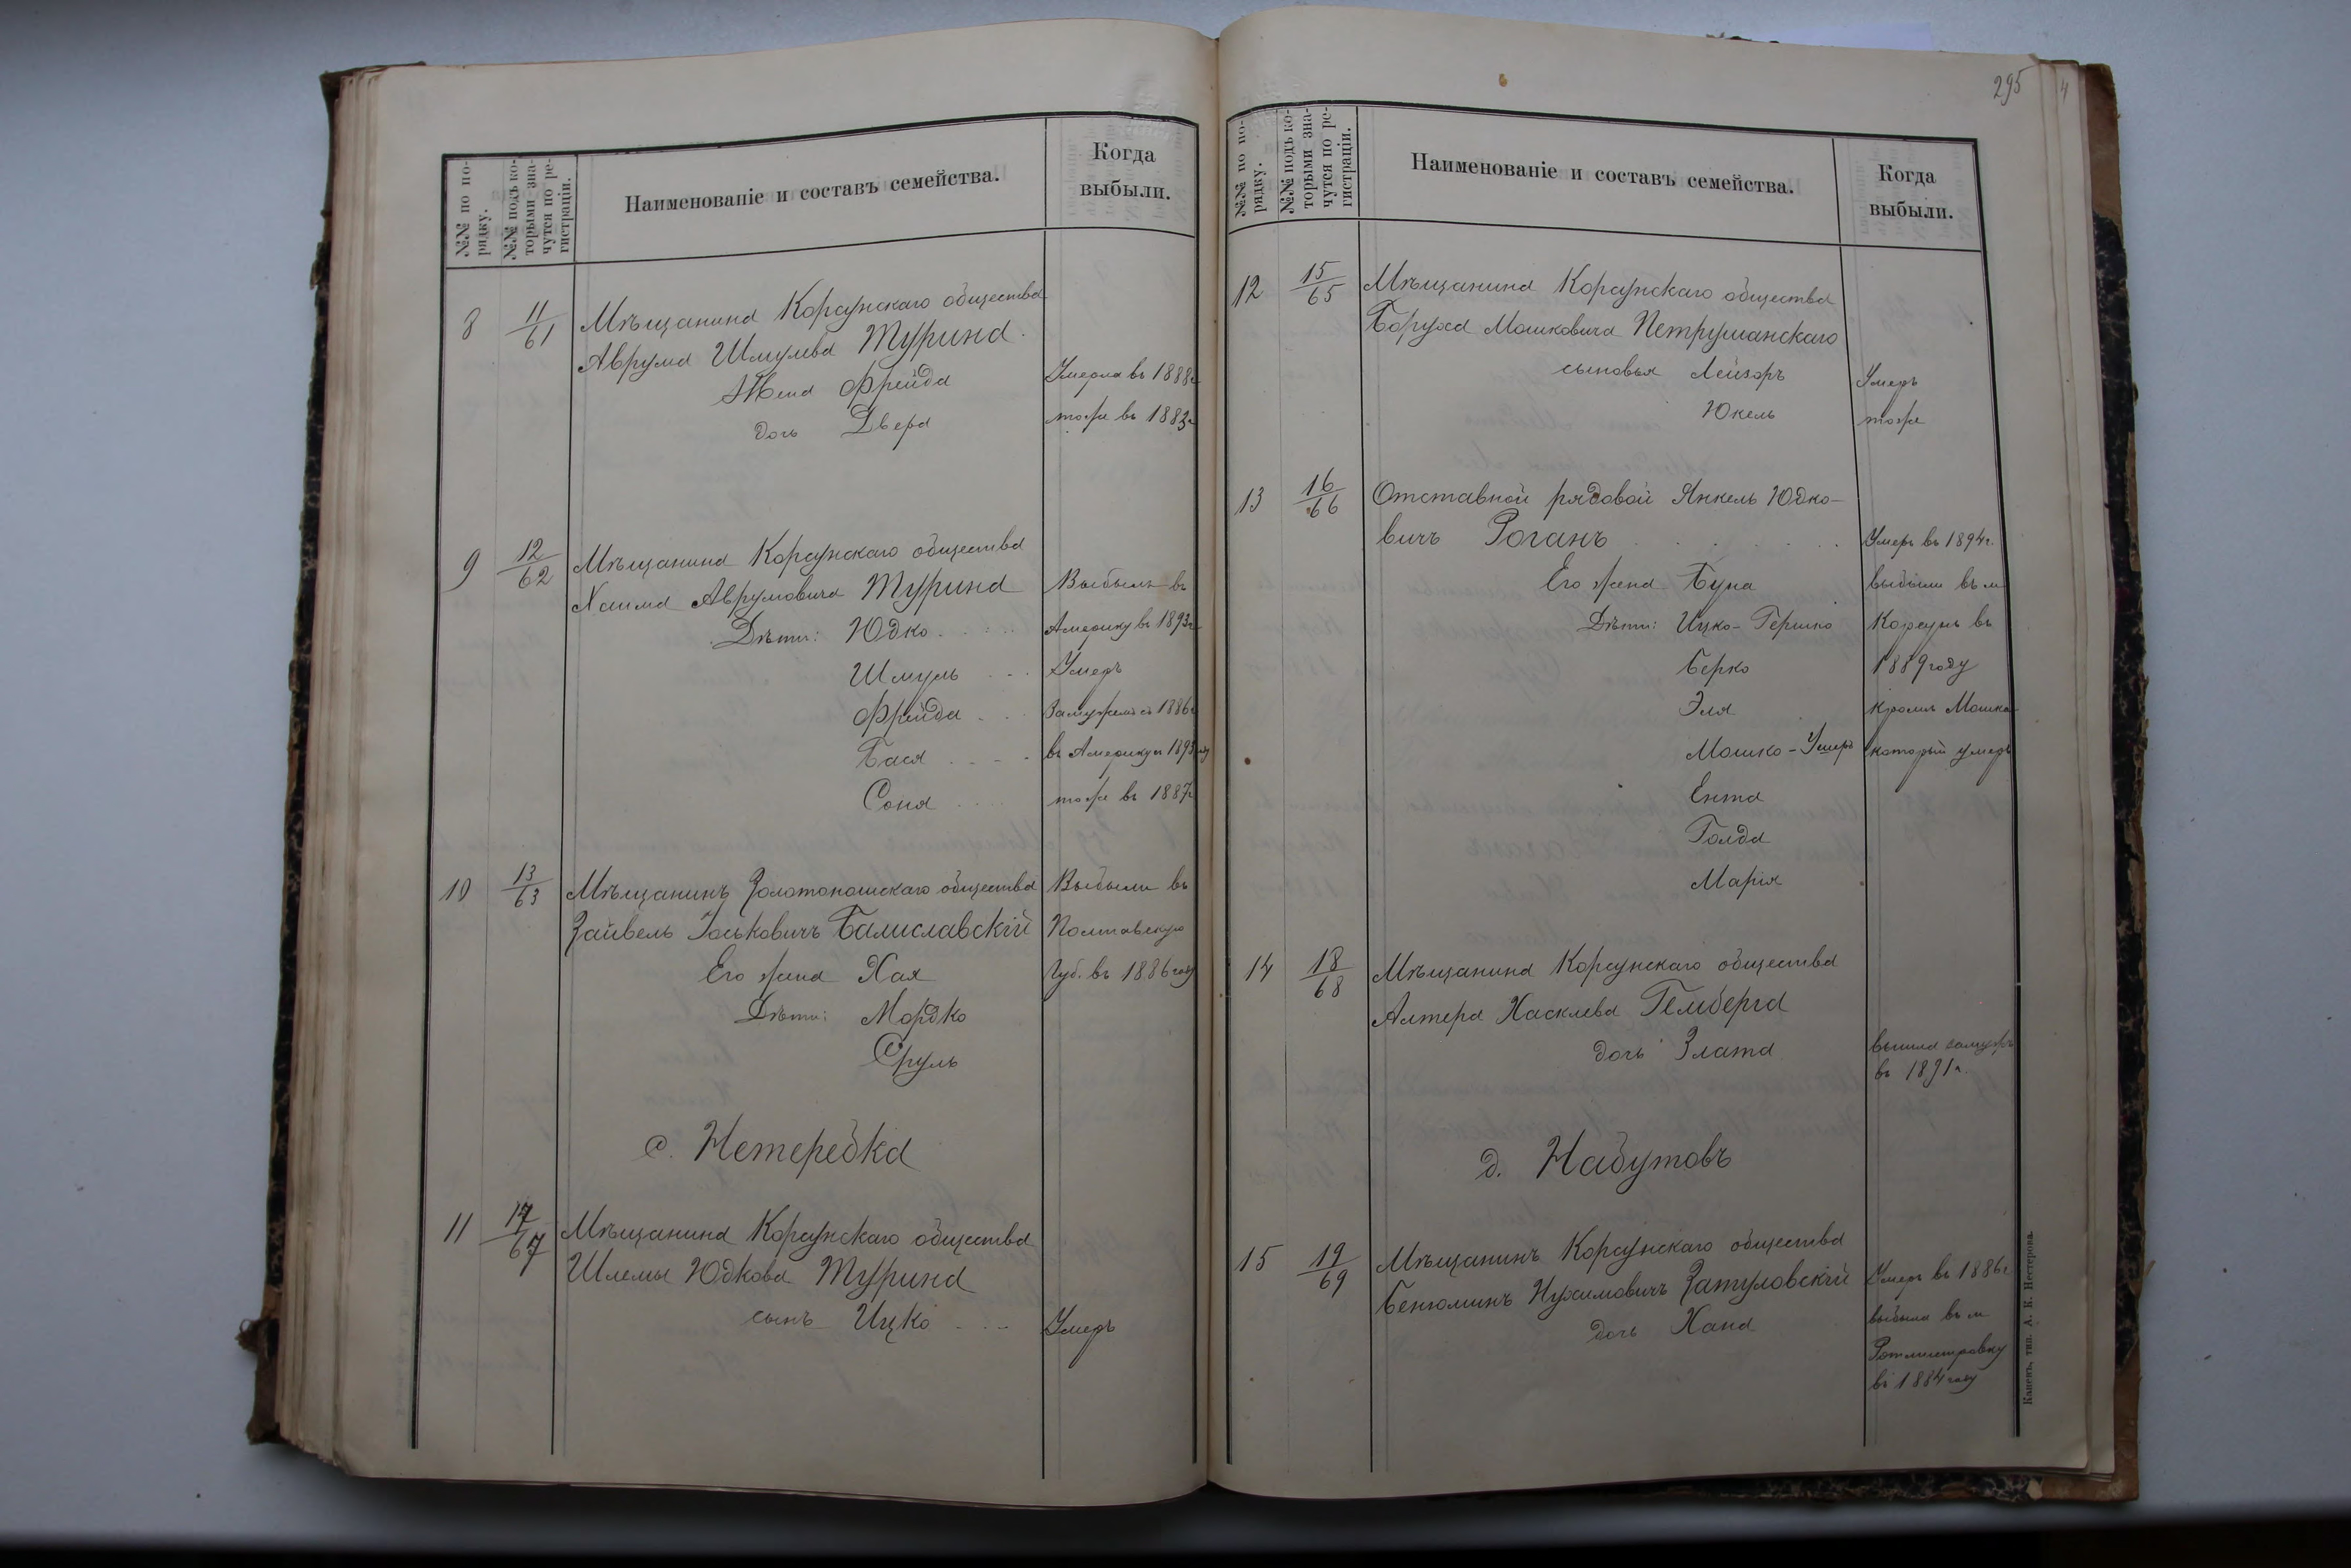 №№ по по-
рядку.
№№ подъ ко-
торыми зна-
чутся по ре-
гистраціи.
Наименованіе и составъ семейства.
Когда
выбыли.
8 11/61 Мѣщанина Корсунскаго общества
Аврума Шмулева Турина.
Жена Фрейда Умерла въ 1888г
дочь Двера тоже въ 1883г
9 12/62 Мѣщанина Корсунскаго общества
Хаима Аврумовича Турина Выбылъ въ
Дѣти: Юдко Америку въ 1893г
Шмуль Умеръ
Фрейда Замужемъ съ 1886г
Бася въ Америку въ 1893году
Соня тоже въ 1887г
10 13/63 Мѣщанинъ Золотоношскаго общества Выбыли въ
Зайвель Іоськовичъ Балиславскій Полтавскую
Его жена Хая Губ. въ 1886году
Дѣти: Мордко
Сруль
с. Нетеребка
11 17/67 Мѣщанина Корсунскаго общества
Шлемы Юдкова Турина
сынъ Ицко Умеръ
295
4
№№ по по-
рядку.
№№ подъ ко-
торыми зна-
чутся по ре-
гистраціи.
Наименованіе и составъ семейства.
Когда
выбыли.
12 15/65 Мѣщанина Корсунскаго общества
Боруха Мошковича Петрушанскаго
сыновья Лейзоръ Умеръ
Юкель тоже
13 16/66 Отставной рядовой Янкель Юдко-
вичъ Роганъ Умеръ въ 1894г.
Его жена Буна выбыли въ м
Дѣти: Ицко-Гершко Корсунь въ
Берко 1889году
Эля кромѣ Мошка
Мошко - Умеръ который умеръ
Ента
Голда
Марія
14 18/68 Мѣщанина Корсунскаго общества
Алтера Хаскелева Гемберга
дочь Злата вышла замужъ
въ 1891г.
д. Набутовъ
15 19/69 Мѣщанинъ Корсунскаго общества
Бенюминъ Нухимовичъ Затуловскій Умеръ въ 1886г
дочь Хана выбыла въ м
Ротмистровку
въ 1884году
Каневъ, тип. А. К. Нестерова.